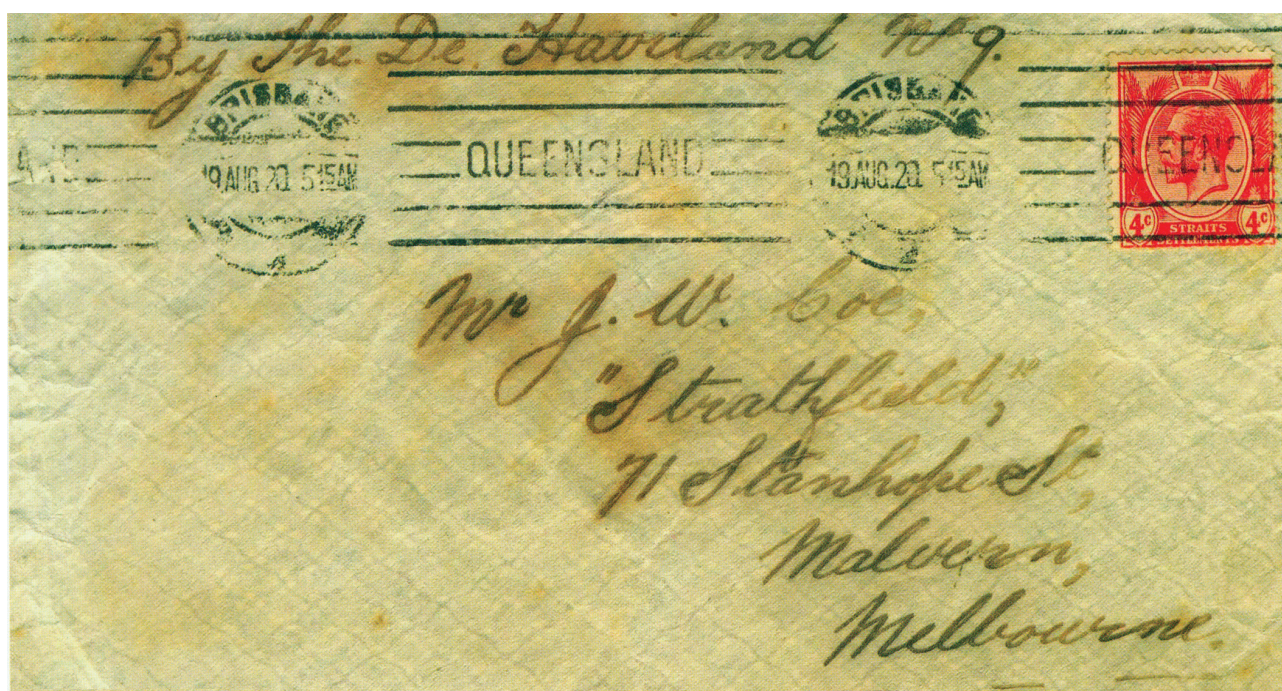 By The De Haviland No 9.
BRISBANE
19.AUG.20 5 15AM
QUEENSLAND
BRISBANE
19.AUG.20 5 15AM
QUEENSLA
AND
4c STRAITS SETTLEMENTS 4c
Mr J. W. Coe,
"Strathfield,"
71 Stanhope St,
Malvern,
Melbourne.